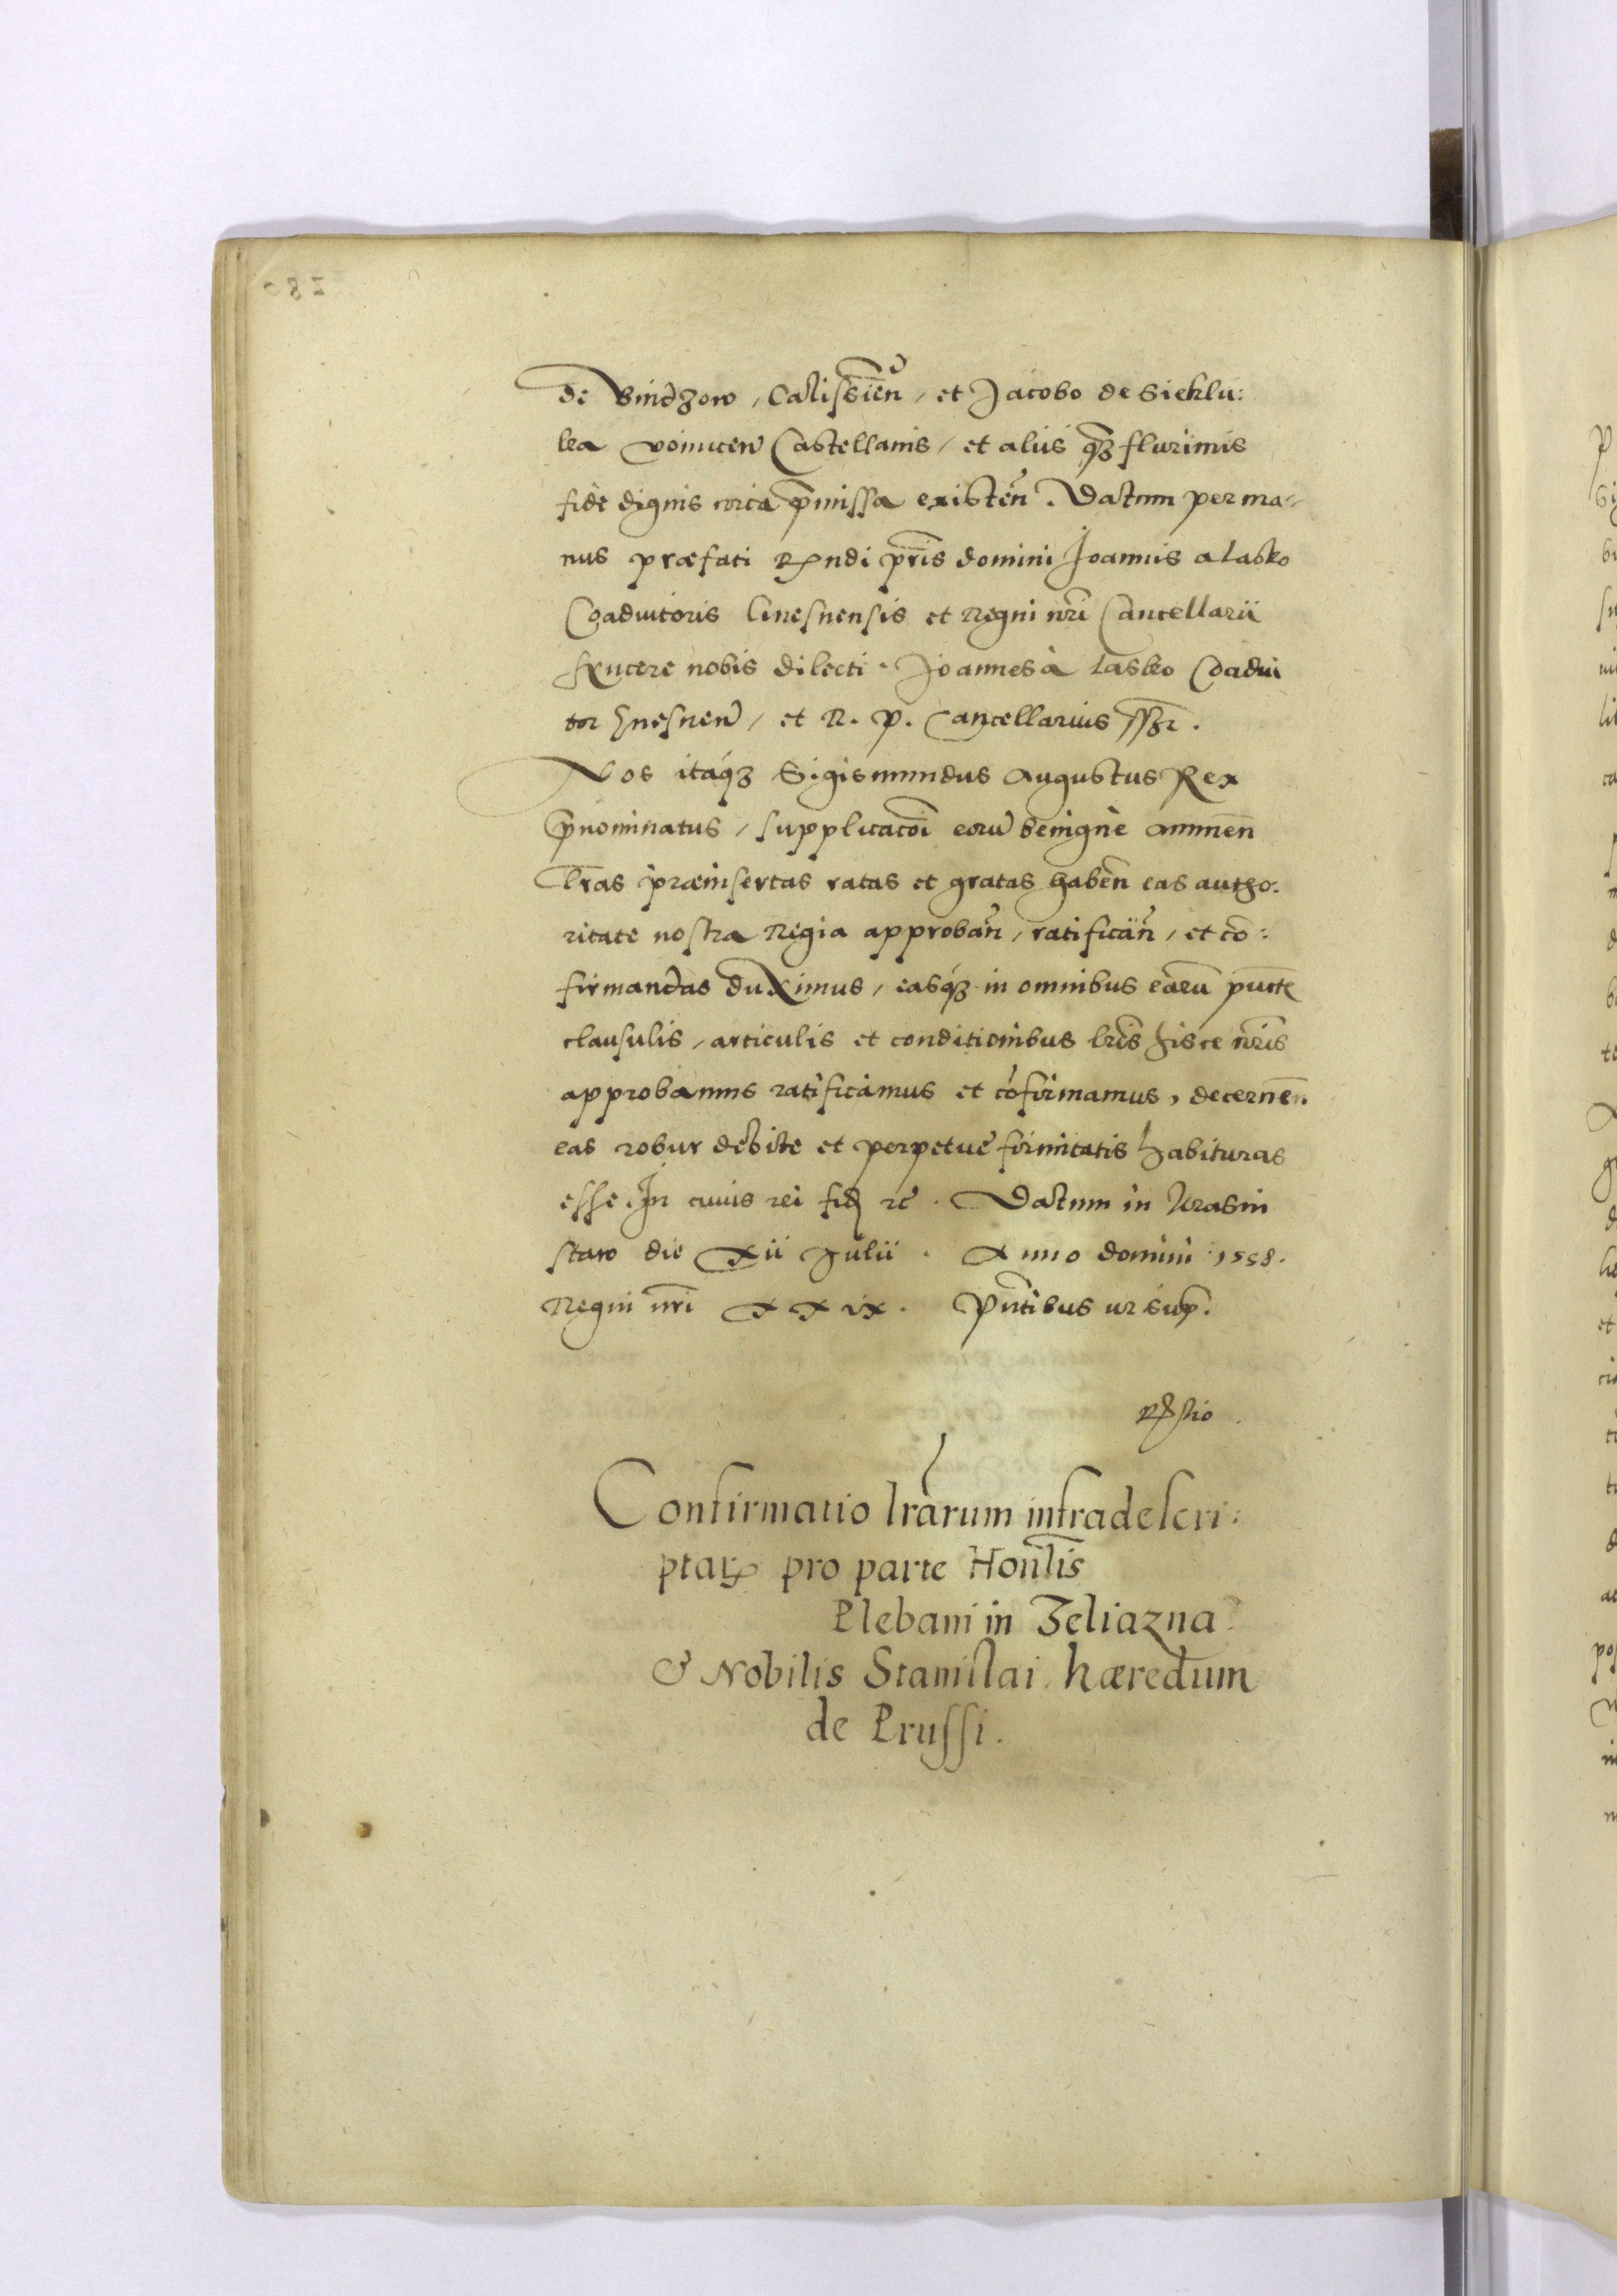 de Vindzow, Calissien̄, et Jacobo de Sieklu:
ka voinicen̄ Castellanis, et aliis q̄ꝫ plurimis
fide dignis circa p̄missa existen̄. Datum per ma-
nus præfati Rn̄di pr̄is domini Joannis a Lasko
Coadiutoris Gnesnensis et Regni nr̄i Cancellarii
syncere nobis dilecti. Joannes à Lasko Coadiu
tor Gnesnen̄, et R. P. Cancellarius sszt.
Nos itaqꝫ Sigismundus Augustus Rex
p̄nominatus, supplicacōi eorū benigne annuen̄
lr̄as præinsertas ratas et gratas haben̄ eas autho:
ritate nostra Regia approban̄, ratifican̄, et cō:
firmandas duximus, easqꝫ in omnibus earū punctꝭ
clausulis, articulis et conditionibus lr̄is hisce nr̄is
approbamus ratificamus et cōfirmamus, decernen̄.
eas robur debite et perpetue firmitatis habituras
esse. In cuius rei fidē ꝛc. Datum in Crasni
staw die xii Julii. Anno domini 1558.
Regni nr̄i xxix. Pn̄tibus ut sup̄.
280
Confirmatio lr̄arum infradescri:
ptarꝝ pro parte Hon̄lis
Plebani in Zeliazna
& Nobilis Stanislai hæredum
de Prussi.